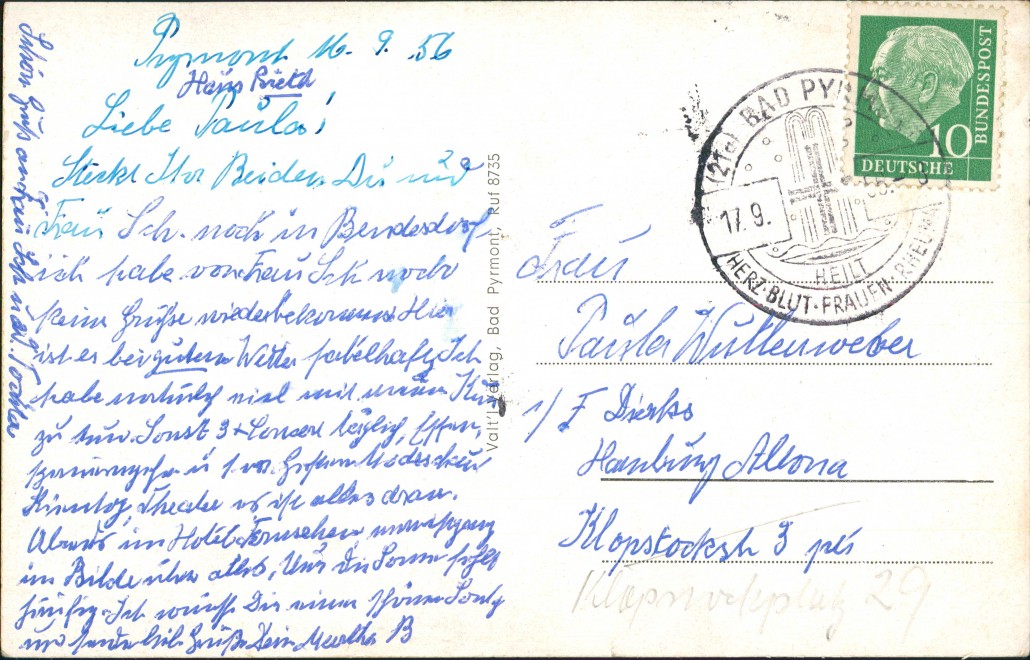 Pyrmont 16. 9. 56
Haus Rieth
Liebe Paula!
Steckt Ihr Beiden Du und
Frau Sch. noch in Bendesdorf
ich habe von Frau Sch noch
keine Grüße wiederbekommen Hier
ist es bei gutem Wetter fabelhaft Ich
habe natürlich viel mit meiner Kur
zu tun. Sonst 3 x Concert täglich, Essen,
spazierengehn u
Theater es ist alles dran.
Abends im Hotel Fernsehen
im Bilde über alles, Nur die Sonne fehlt
häufig. Ich wünsche Dir einen schönen Sonntg
und sende lieb. Grüße Dein Martha B
Schön Gruß an Frau Sch und Tochter
Valt'l Verlag, Bad Pyrmont, Ruf 8735
(21a) BAD PYRMONT
17. 9. 56
HEILT
HERZ · BLUT · FRAUEN · RHEUMA
DEUTSCHE
BUNDESPOST
10
Frau
Paula Wullenweber
1/ F Dierks
Hamburg Altona
Klopstockstr 3 ptr
Klopstockplatz 29